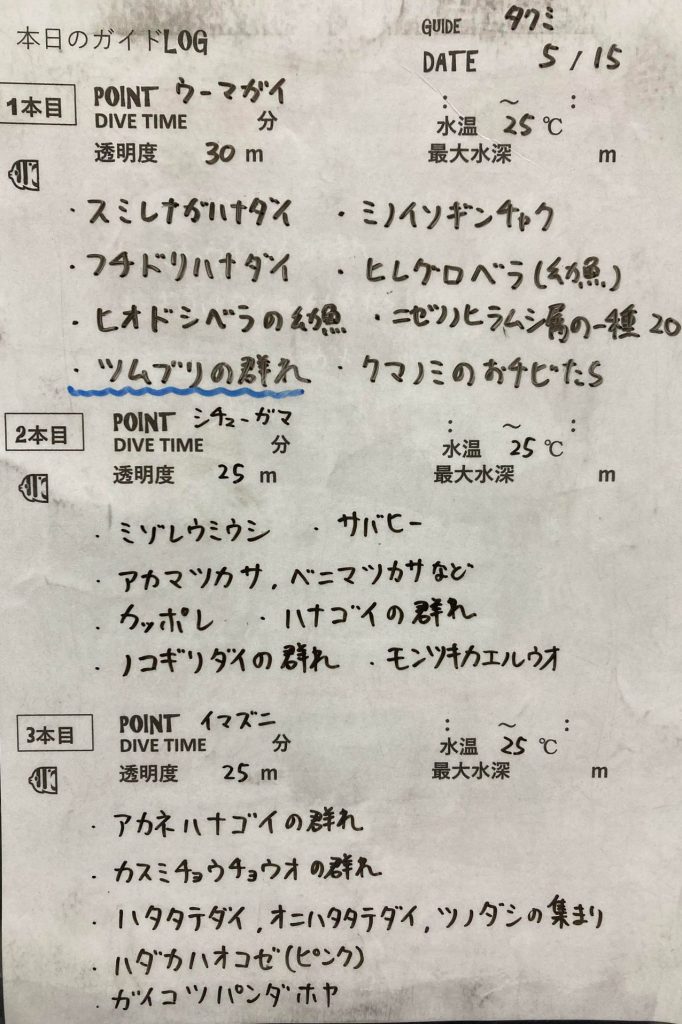 本日のガイドLOG
GUIDE タクミ
DATE 5/15
1本目 POINT ウーマガイ : ～ :
DIVE TIME 分 水温 25 ℃
透明度 30 m 最大水深 m
・スミレナガハナダイ ・ミノイソギンチャク
・フチドリハナダイ ・ヒレグロベラ(幼魚)
・ヒオドシベラの幼魚 ・ニセツノヒラムシ属の一種20
・ツムブリの群れ ・クマノミのおチビたち
2本目 POINT シチューガマ : ～ :
DIVE TIME 分 水温 25 ℃
透明度 25 m 最大水深 m
・ミゾレウミウシ ・サバヒー
・アカマツカサ,ベニマツカサなど
・カッポレ ・ハナゴイの群れ
・ノコギリダイの群れ ・モンツキカエルウオ
3本目 POINT イマズニ : ～ :
DIVE TIME 分 水温 25 ℃
透明度 25 m 最大水深 m
・アカネハナゴイの群れ
・カスミチョウチョウオの群れ
・ハタタテダイ,オニハタタテダイ,ツノダシの集まり
・ハダカハオコゼ(ピンク)
・ガイコツパンダホヤ